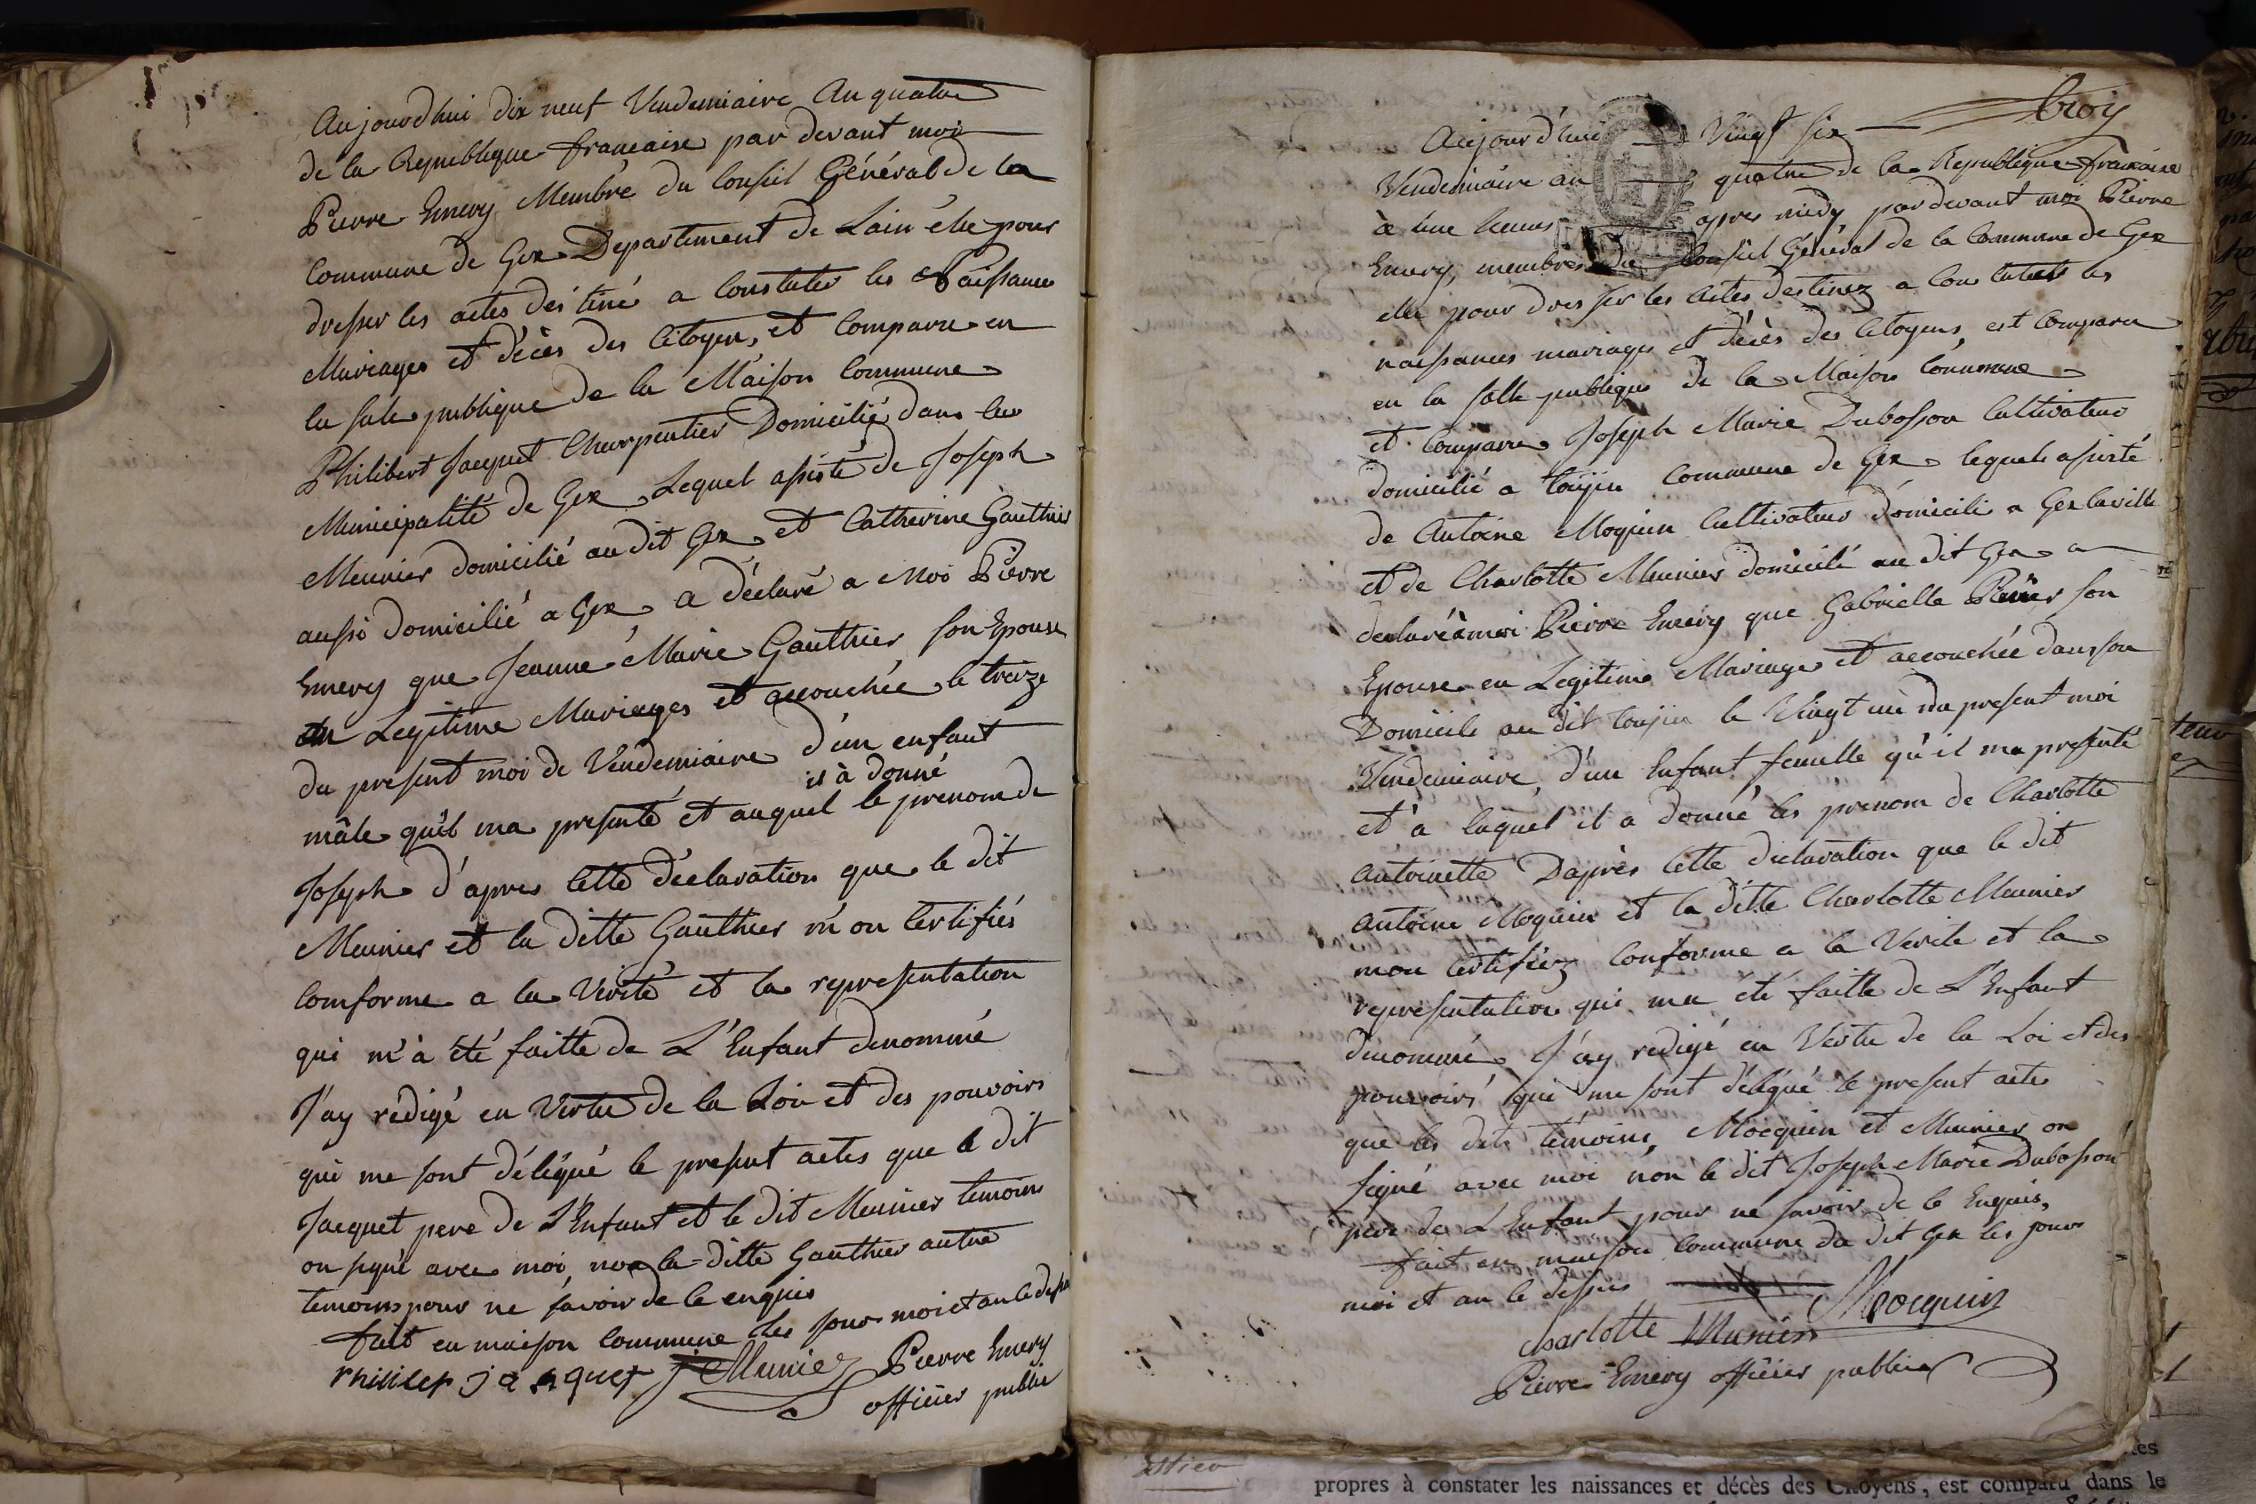 Aujourdhui dix neuf Vendemiaire An quatre
de la Republique francaise par devant moi
Pierre Emery Membre du Conseil Général de la
Commune de Gex Departement de Lain élu pour
dresser les actes déstiné a Constater les Naissances
Mariages et décès des Citoyen, et Comparu en
la sale publique de la Maison Commune
Philibert Jacquet Charpentier Domicilié dans la
Municipalité de Gex Lequel assisté de Joseph
Meunier domicilié au dit Gex et Catherine Gauthier
aussi domicilié a Gex a déclaré a Moi Pierre
Emery que Jeanne Marie Gauthier son Epouse
en Legitime Mariages et accouchée le treize
du present moi de Vendemiaire d'un enfant
il à donné
mâle qu'il ma presenté et auquel le prenom de
Joseph d'apres Cette déclaration que le dit
Meunier et la ditte Gauthier m'on Certifiés
Comforme a la Verité et la representation
qui m'à été faitte de L'Enfant denommé
J'ay rédigé en Vertu de la Loi et des pouvoirs
qui me sont délégué le present actes que le dit
Jacquet pere de L'Enfant et le dit Meunier temoins
on signé avec moi, non la ditte Gauthier autre
temoins pour ne savoir de le enquis
fait en maison Commune les jour moi et an le dessu
philiber jacquet J Munier Pierre Emery
officier public
troy
Aujourd'hui Vingt six
Vendemiaire an quatre de la Republique francaise
a une heure apres midy par devant moi Pierre
Emery, membre du Conseil Général de la Commune de Gex
elu pour dresser les actes destinez a Constater les
naissances mariages et décès des Citoyens, est Comparu
en la salle publique de la Maison Commune
et Comparu Joseph Marie Dubosson Cultivateur
domicilié a toujin Commune de Gex lequel assisté
de Antoine Moquin Cultivateur domicilié a Gex la ville
et de Charlotte Meunier domicilié au dit Gex a
declaré à moi Pierre Emery que Gabrielle son
Epouse en Legitime Mariage et accouchée dans son
Domicile au dit toujin le Vingt un du present moi
Vendemiaire, d'un Enfant femelle qu'il ma presenté
et à laquel il a donné les prenom de Charlotte
Antoinette D'après Cette declaration que le dit
Antoine Moquin et la ditte Charlotte Meunier
mon Certifiez Conforme a la Verite et la
representation qui ma été faitte de L'Enfant
denommé J'ay redigé en Vertu de la Loi et des
pouvoirs qui me sont délégué le present acte
que les dits témoins, Mocquin et Meunier on
signé avec moi non le dit Joseph Marie Dubosson
pere de L'Enfant pour ne savoir de le Enquis,
fait en maison Commune du dit Gex les jour
moi et an le dessus
Mocquin
charlotte Munier
Pierre Emery officier public
propres à constater les naissances et décès des Citoyens, est comparu dans le